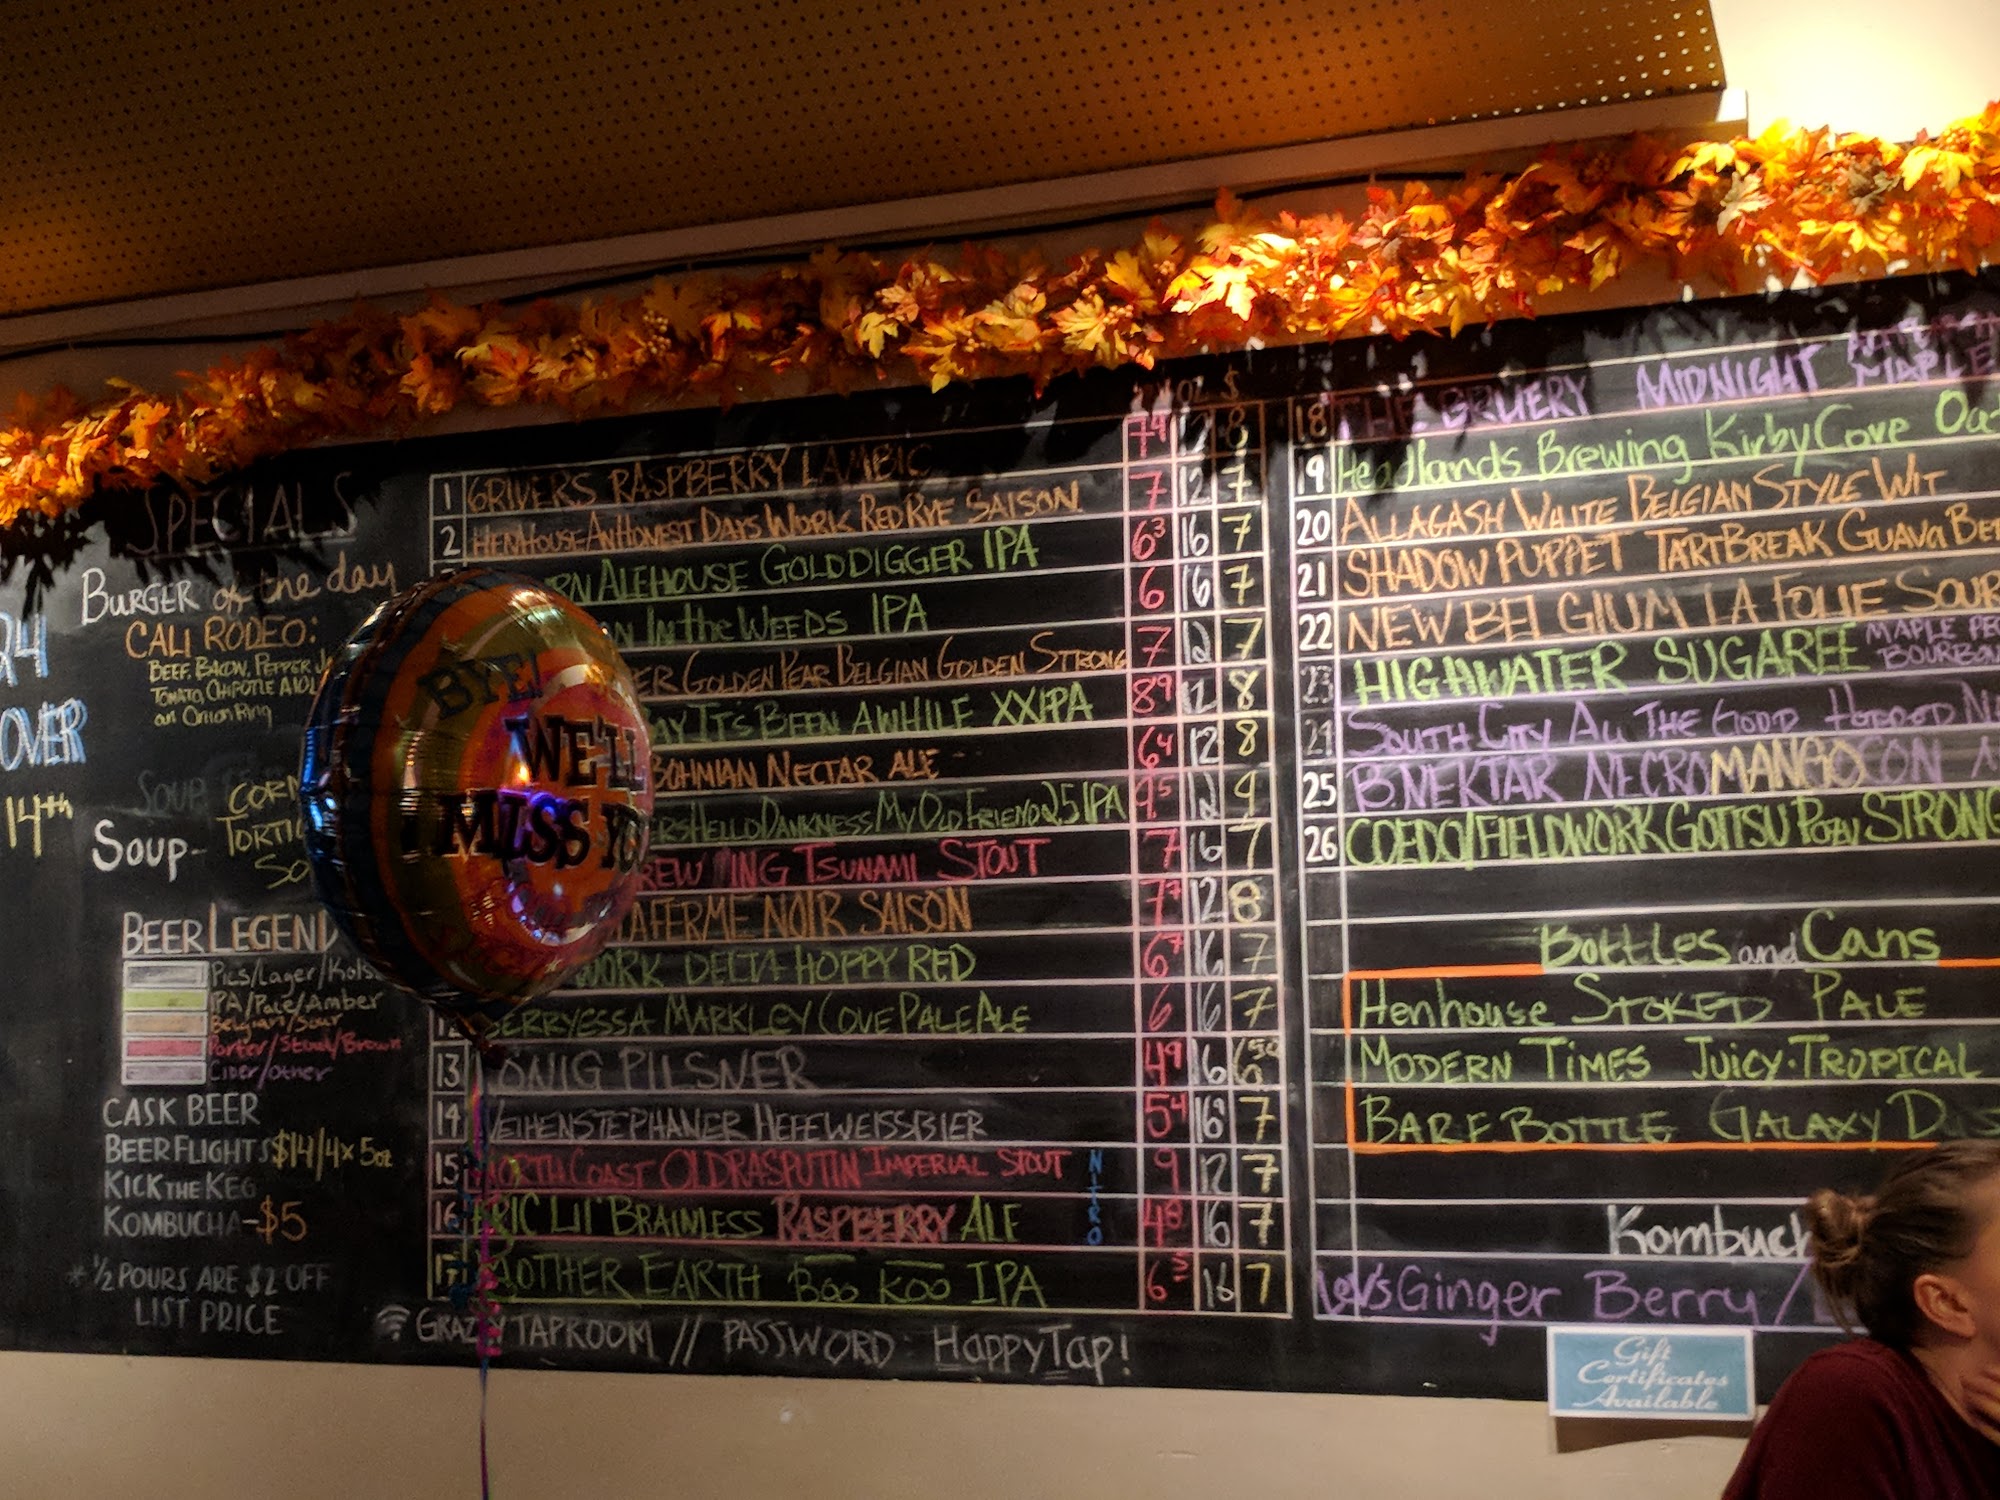 24
OVER
14th
SPECIALS
BURGER of the day
CALI RODEO:
BEEF, BACON, PEPPER
TOMATO, CHIPOTLE
an Onion Ring
SOUP
SOUP-
CORN
BEER LEGEND
Pils/Lager/
IPA/Pale/Amber
Belgian/Sour
Porter/Stout/Brown
Cider/other
CASK BEER
BEER FLIGHTS $14/4x5oz
KICK THE KEG
KOMBUCHA-$5
*½ POURS ARE $2 OFF
LIST PRICE
BYE!
WE'LL
MISS
OZ $
1 6RIVERS RASPBERRY LAMBIC 74 12 8
2 HENHOUSE AN HONEST DAYS WORK RED RYE SAISON 7 12 7
ALEHOUSE GOLD DIGGER IPA 63 16 7
In the WEEDS IPA 6 16 7
GOLDEN YEAR BELGIAN GOLDEN STRONG 7 12 7
IT'S BEEN AWHILE XXIPA 89 12 8
BOHMIAN NECTAR ALE 64 12 8
HELLO DANKNESS MY OLD FRIEND 2.5 IPA 95 12 9
TSUNAMI STOUT 7 16 7
NOIR SAISON 77 12 8
DELTA HOPPY RED 67 16 7
12 BERRYESSA MARKLEY COVE PALE ALE 6 16 7
13 PILSNER 49 16
14 WEIHENSTEPHANER HEFEWEISSBIER 54 16 7
15 NORTH COAST OLD RASPUTIN IMPERIAL STOUT NITRO 9 12 7
16 LIL' BRAINLESS RASPBERRY ALE 48 16 7
17 MOTHER EARTH BOO KOO IPA 65 16 7
TAPROOM // PASSWORD: HappyTap!
18 THE BRUERY MIDNIGHT MAPLE
19 Headlands Brewing Kirby Cove
20 ALLAGASH WHITE BELGIAN STYLE WIT
21 SHADOW PUPPET TARTBREAK GUAVA
22 NEW BELGIUM LA FOLIE SOUR
23 HIGHWATER SUGAREE MAPLE BOURBON
24 SOUTH CITY ALL THE GOOD
25 B.NEKTAR NECROMANGOCON
26 COEDO/FIELDWORK GOTTSU STRONG
Bottles and Cans
Henhouse STOKED PALE
MODERN TIMES JUICY-TROPICAL
BARE BOTTLE GALAXY
Lev's Ginger Berry/
Gift
Certificates
Available